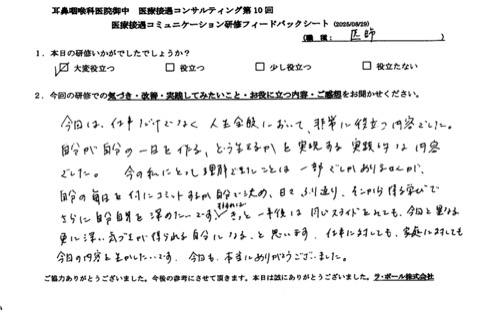 耳鼻咽喉科医院御中 医療接遇コンサルティング第10回
医療接遇コミュニケーション研修フィードバックシート (2025/08/29)
(職種: 医師 )
1.本日の研修いかがでしたでしょうか?
☑大変役立つ □役立つ □少し役立つ □役立たない
2.今回の研修での気づき・改善・実践してみたいこと・お役に立つ内容・ご感想をお聞かせください。
今日は、仕事だけでなく 人生全般において、非常に役立つ内容でした。
自分が自分の一日を作る、どう生きるかを実現する 実践的な内容
でした。 今の私にとって理解できたことは一部でしかありませんが、
自分の毎日を何にコミットするか自分で決め、日々ふり返り、そこから得る学びで
さらに自分自身を深めたいです。そうすればきっと一年後は同じスライドをみても、今日と異なる
更に深い気づきが得られる自分になる、と思います。仕事に対しても、家庭に対しても
今日の内容を生かしたいです。今日も、本当にありがとうございました。
ご協力ありがとうございました。今後の参考にさせて頂きます。本日は誠にありがとうございました。ラ・ポール株式会社